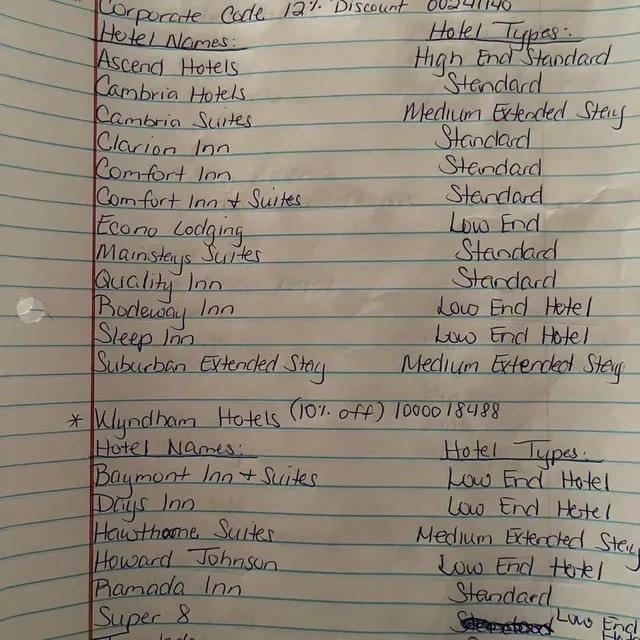 Corporate Code 12% Discount 00241140
Hotel Names: Hotel Types:
Ascend Hotels High End Standard
Cambria Hotels Standard
Cambria Suites Medium Extended Stay
Clarion Inn Standard
Comfort Inn Standard
Comfort Inn + Suites Standard
Econo Lodging Low End
Mainstays Suites Standard
Quality Inn Standard
Rodeway Inn Low End Hotel
Sleep Inn Low End Hotel
Suburban Extended Stay Medium Extended Stay
* Wyndham Hotels (10% off) 1000018488
Hotel Names: Hotel Types:
Baymont Inn + Suites Low End Hotel
Days Inn Low End Hotel
Hawthorne Suites Medium Extended Stay
Howard Johnson Low End Hotel
Ramada Inn Standard
Super 8 Low End